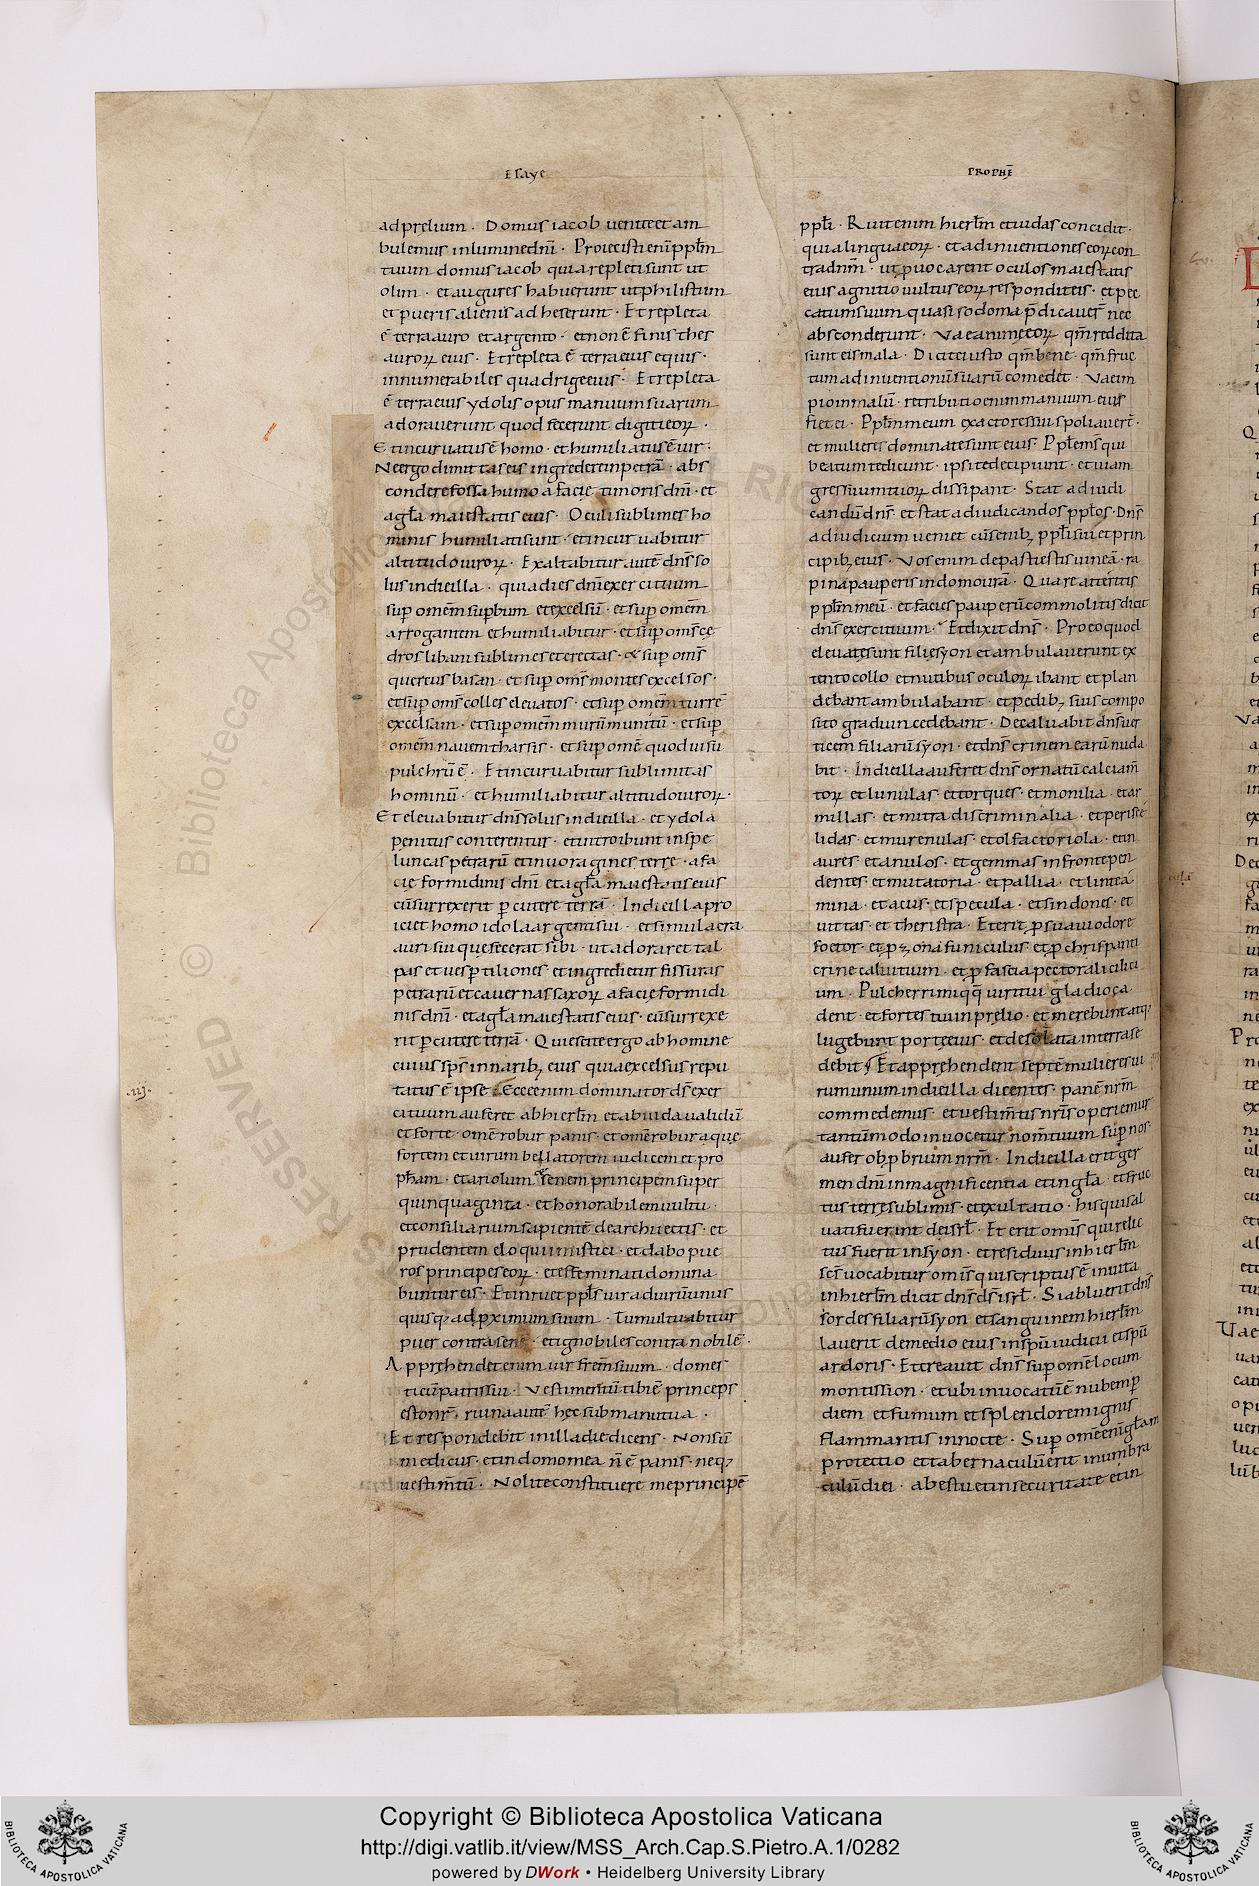 ESAYE
PROPHĒ
ad prelium · Domus iacob uenite et am
bulemus in lumine dn̄i · Proiecisti enī ppłm
tuum domus iacob quia repleti sunt ut
olim · et augures habuerunt ut philistiim
et pueris alienis adheserunt · Et repleta
ē terra auro et argento · et non ē finis thes
auroꝝ eius · Et repleta ē terra eius equis ·
innumerabiles quadrige eius · Et repleta
ē terra eius ydolis opus manuum suarum
adorauerunt quod fecerunt digiti eoꝝ ·
Et incuruatus ē homo · et humiliatus ē uir ·
Ne ergo dimittas eis ingredere in petrā · abs
condere fossa humo a facie timoris dn̄i · et
a gła maiestatis eius · Oculi sublimes ho
minis humiliati sunt · et incuruabitur
altitudo uiroꝝ · Exaltabitur autē dn̄s so
lus in die illa · quia dies dn̄i exercituum
sup omēm supbum et excelsū · et sup omēm
arrogantem et humiliabitur · et sup om̄s ce
dros libani sublimes et erectas · & sup om̄s
quercus basan · et sup om̄s montes excelsos ·
et sup om̄s colles eleuatos · et sup omēm turrē
excelsam · et sup omēm murū munitū · et sup
omēm nauem tharsis · et sup omē quod uisu
pulchrū ē · Et incuruabitur sublimitas
hominū · et humiliabitur altitudo uiroꝝ ·
Et eleuabitur dn̄s solus in die illa · et ydola
penitus conterentur · et introibunt in spe
luncas petrarū et in uoragines terre · a fa
cie formidinis dn̄i et a gła maiestatis eius
cū surrexerit pcutere terrā · In die illa pro
iciet homo idola argenti sui · et simulacra
auri sui que fecerat sibi · ut adoraret tal
pas et uesptiliones · et ingredietur fissuras
petrarū et cauernas saxoꝝ a facie formidi
nis dn̄i · et a gła maiestatis eius · cū surrexe
rit pcutere terrā · Quiescite ergo ab homine
cuius sps̄ in narib; eius quia excelsus repu
tatus ē ipse · Ecce enim dominator ds̄ exer
cituum auferet ab hierłm et a biuda ualidū
et forte · omē robur panis · et omē robur aque
fortem et uirum bellatorem iudicem et pro
ph̄am · et ariolum & senem principem super
quinquaginta · et honorabilem uultu ·
et consiliarium sapientē de architectis · et
prudentem eloquii mistici · et dabo pue
ros principes eoꝝ · et effeminati domina
buntur eis · Et inruet ppłs uir ad uirū unus
quisq; ad pximum suum · Tumultuabitur
puer contra senē · et ignobiles contra nobilē ·
Apprehendet enim uir frem̄ suum · domes
ticū patris sui · Vestimentū tibi ē princeps
esto nr̄ · ruina autē hec sub manu tua ·
Et respondebit in illa die dicens · Non sū
medicus · et in domo mea n̄ ē panis · neq;
uestim̄tū · Nolite constituere me principē
ppłi · Ruit enim hierłm et iudas concidit ·
quia lingua eoꝝ · et adinuentiones eoꝝ con
tra dnm̄ · ut puocarent oculos maiestatis
eius agnitio uultus eoꝝ respondit eis · et pec
catum suum quasi sodoma p̄dicauer̄ nec
absconderunt · Vae anime eoꝝ qm̄ reddita
sunt eis mala · Dicite iusto qm̄ bene · qm̄ fruc
tum adinuentionū suarū comedet · Vae im
pio in malū · retributio enim manuum eius
fiet ei · Ppłm meum exactores sui spoliauer̄t ·
et mulieres dominate sunt eius · Pple m̄s qui
beatum te dicunt · ipsi te decipiunt · et uiam
gressuum tuoꝝ dissipant · Stat ad iudi
candū dn̄s · et stat ad iudicandos ppłos · Dn̄s
ad iudicium ueniet cū senib; ppłi sui et prin
cipib; eius · Vos enim depasti estis uineā · ra
pina pauperis in domo urā · Quare atteritis
ppłm meū · et facies pauperū commolitis dicit
dn̄s exercituum · Et dixit dn̄s · Pro eo quod
eleuate sunt filie syon et ambulauerunt ex
tento collo et nutibus oculoꝝ ibant et plau
debant ambulabant · et pedib; suis compo
sito gradu incedebant · Decaluabit dn̄s uer
ticem filiarū syon · et dn̄s crinem earū nuda
bit · In die illa auferet dn̄s ornatū calciam̄
toꝝ et lunulas · et torques · et monilia · et ar
millas · et mitra discriminalia · et periscē
lidas · et murenulas · et olfactoriola · et in
aures · et anulos · et gemmas in fronte pen
dentes · et mutatoria · et pallia · et lintea
mina · et acus · et specula · et sindones · et
uittas · et theristra · Et erit p suaui odore
foetor · et p zona funiculus · et p chrispanti
crine caluitium · et p fascia pectorali cilici
um · Pulcherrimi qq uiri tui gladio ca
dent · et fortes tui in prelio · et merebunt atq;
lugebunt porte eius · et desolata in terra se
debit · Et apprehendent septē mulieres ui
rum unum in die illa dicentes · panē nr̄m
commedemus · et uestim̄tis nr̄is operiemur
tantūmodo inuocetur nom̄ tuum sup nos ·
aufer obpbrium nr̄m · In die illa erit ger
men dn̄i in magnificentia et in gła · et fruc
tus terre sublimis · et exultatio · his qui sal
uati fuerint de isrł · Et erit omīs qui relic
tus fuerit in syon · et residuus in hierłm
scs̄ uocabitur omīs qui scriptus ē in uita
in hierłm dicit dn̄s ds̄ isrł · Si abluerit dn̄s
sordes filiarū syon et sanguinem hierłm
lauerit de medio eius in spū iudicii et spū
ardoris · Et creauit dn̄s sup omē locum
montis sion · et ubi inuocatū ē nubem p
diem et fumum et splendorem ignis
flammantis in nocte · Sup omē enī głam
protectio et tabernaculū erit in umbra
culū diei · ab estu et in securitate et in
Copyright © Biblioteca Apostolica Vaticana
http://digi.vatlib.it/view/MSS_Arch.Cap.S.Pietro.A.1/0282
powered by DWork • Heidelberg University Library
BIBLIOTECA APOSTOLICA VATICANA
BIBLIOTECA APOSTOLICA VATICANA